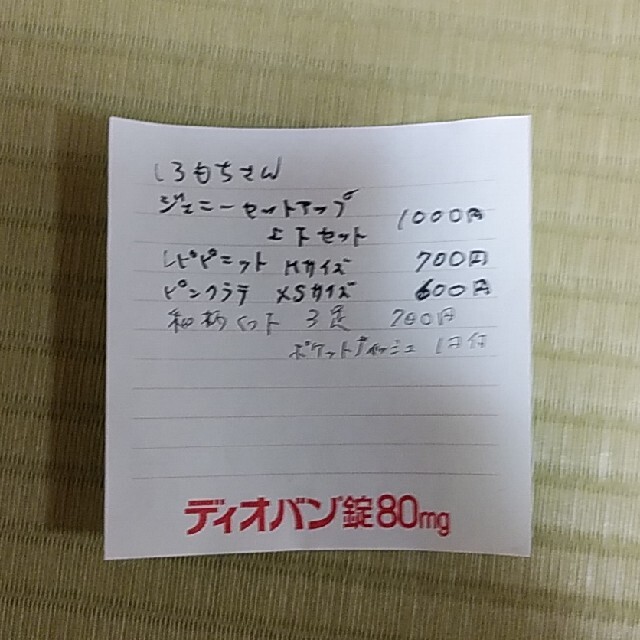 しろもちさん
ジェニーセットアップ 1000円
上下セット
レピピニット Mサイズ 700円
ピンクラテ XSサイズ 600円
和柄くつ下 3足 700円
ポケットティッシュ 1日付
ディオバン錠80mg